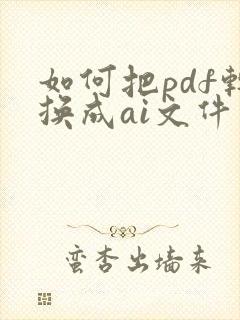 如何把pdf转
换成ai文件
蛮杏出墙来